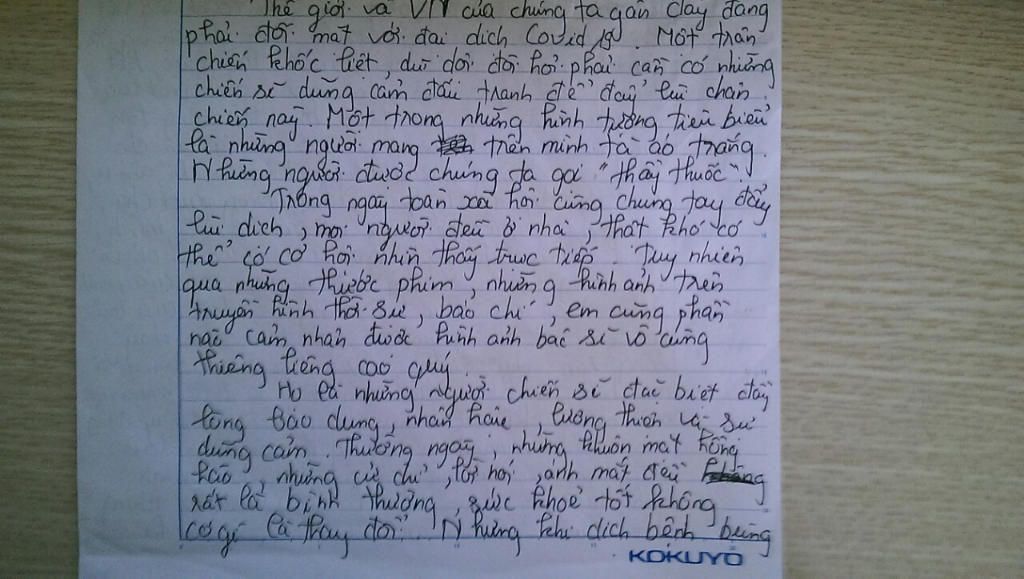 Thế giới và VN của chúng ta gần đây đang
phải đối mặt với đại dịch Covid 19. Một trận
chiến khốc liệt, dữ dội đòi hỏi phải cần có những
chiến sĩ dũng cảm đấu tranh để đẩy lùi chận
chiến này. Một trong những hình tượng tiêu biểu
là những người mang trên mình tà áo trắng.
Những người được chúng ta gọi "thầy thuốc".
Trong ngày toàn xã hội cùng chung tay đẩy
lùi dịch, mọi người đều ở nhà, thật khó có
thể có cơ hội nhìn thấy trực tiếp. Tuy nhiên
qua những thước phim, những hình ảnh trên
truyền hình thời sự, báo chí, em cũng phần
nào cảm nhận được hình ảnh bác sĩ vô cùng
thiêng liêng cao quý.
Họ là những người chiến sĩ đặc biệt đầy
lòng bao dung, nhân hậu, lương thiện và sự
dũng cảm. Thường ngày, những khuôn mặt hồng
hào, những cử chỉ, lời nói, ánh mắt đều
rất là bình thường, sức khoẻ tốt không
có gì là thay đổi. Nhưng khi dịch bệnh bùng
KOKUYO